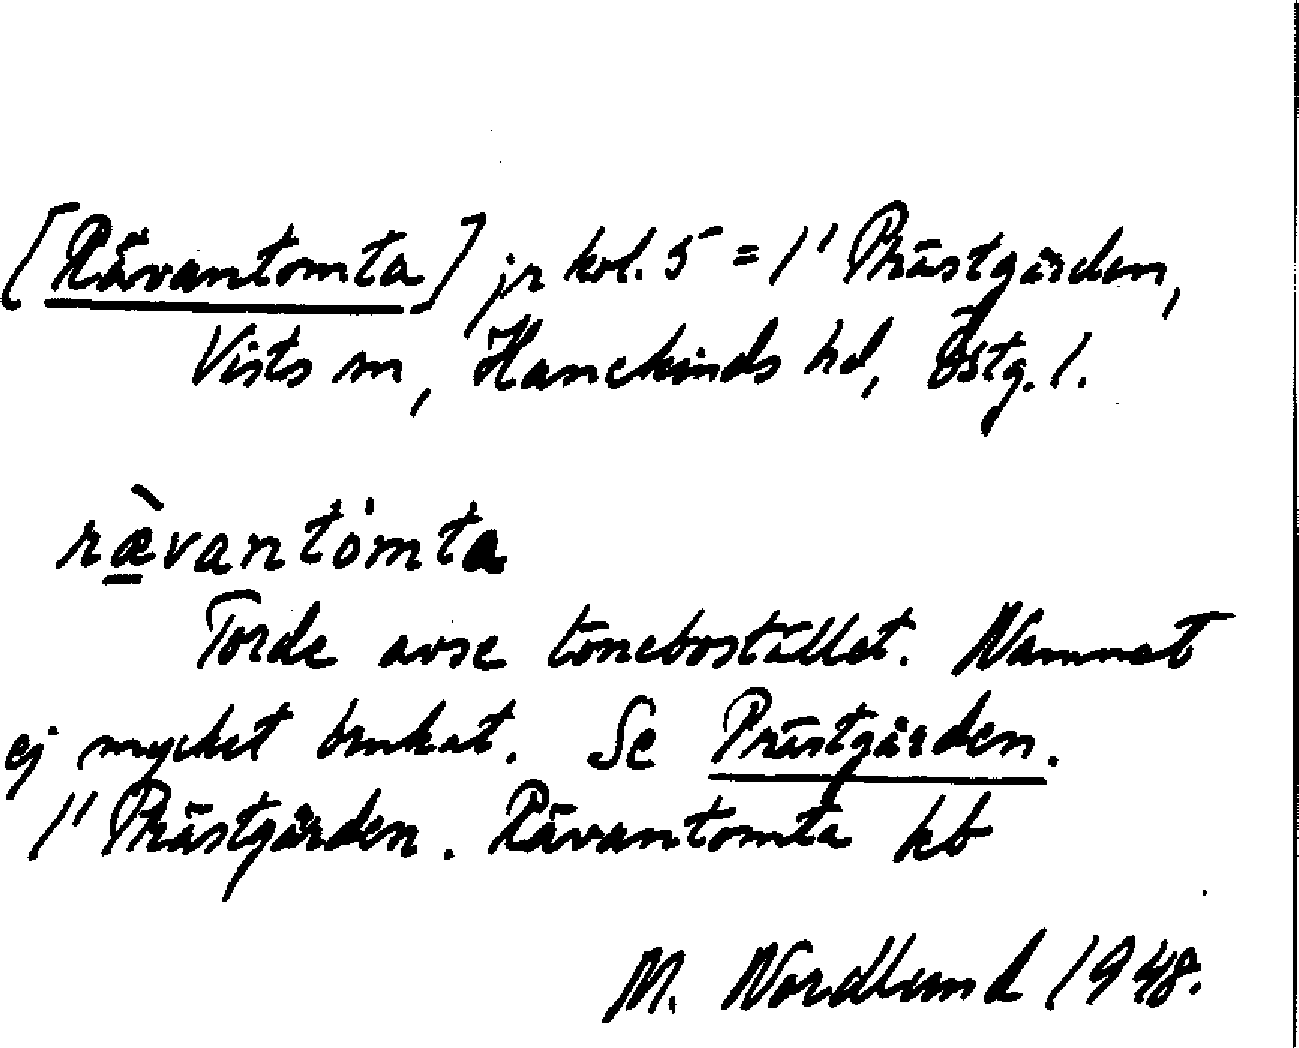 [Rävantomta] jr kol. 5 = 1¹ Prästgården,
Vists sn, Hanekinds hd, Östg. l.
rævantòmta
Torde avse bostället. Namnet
ej mycket brukat. Se Prästgården.
1¹ Prästgården. Rävantomta kb
M. Nordlund 1948.